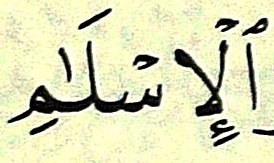 ٱلْإِسْلَٰمِ